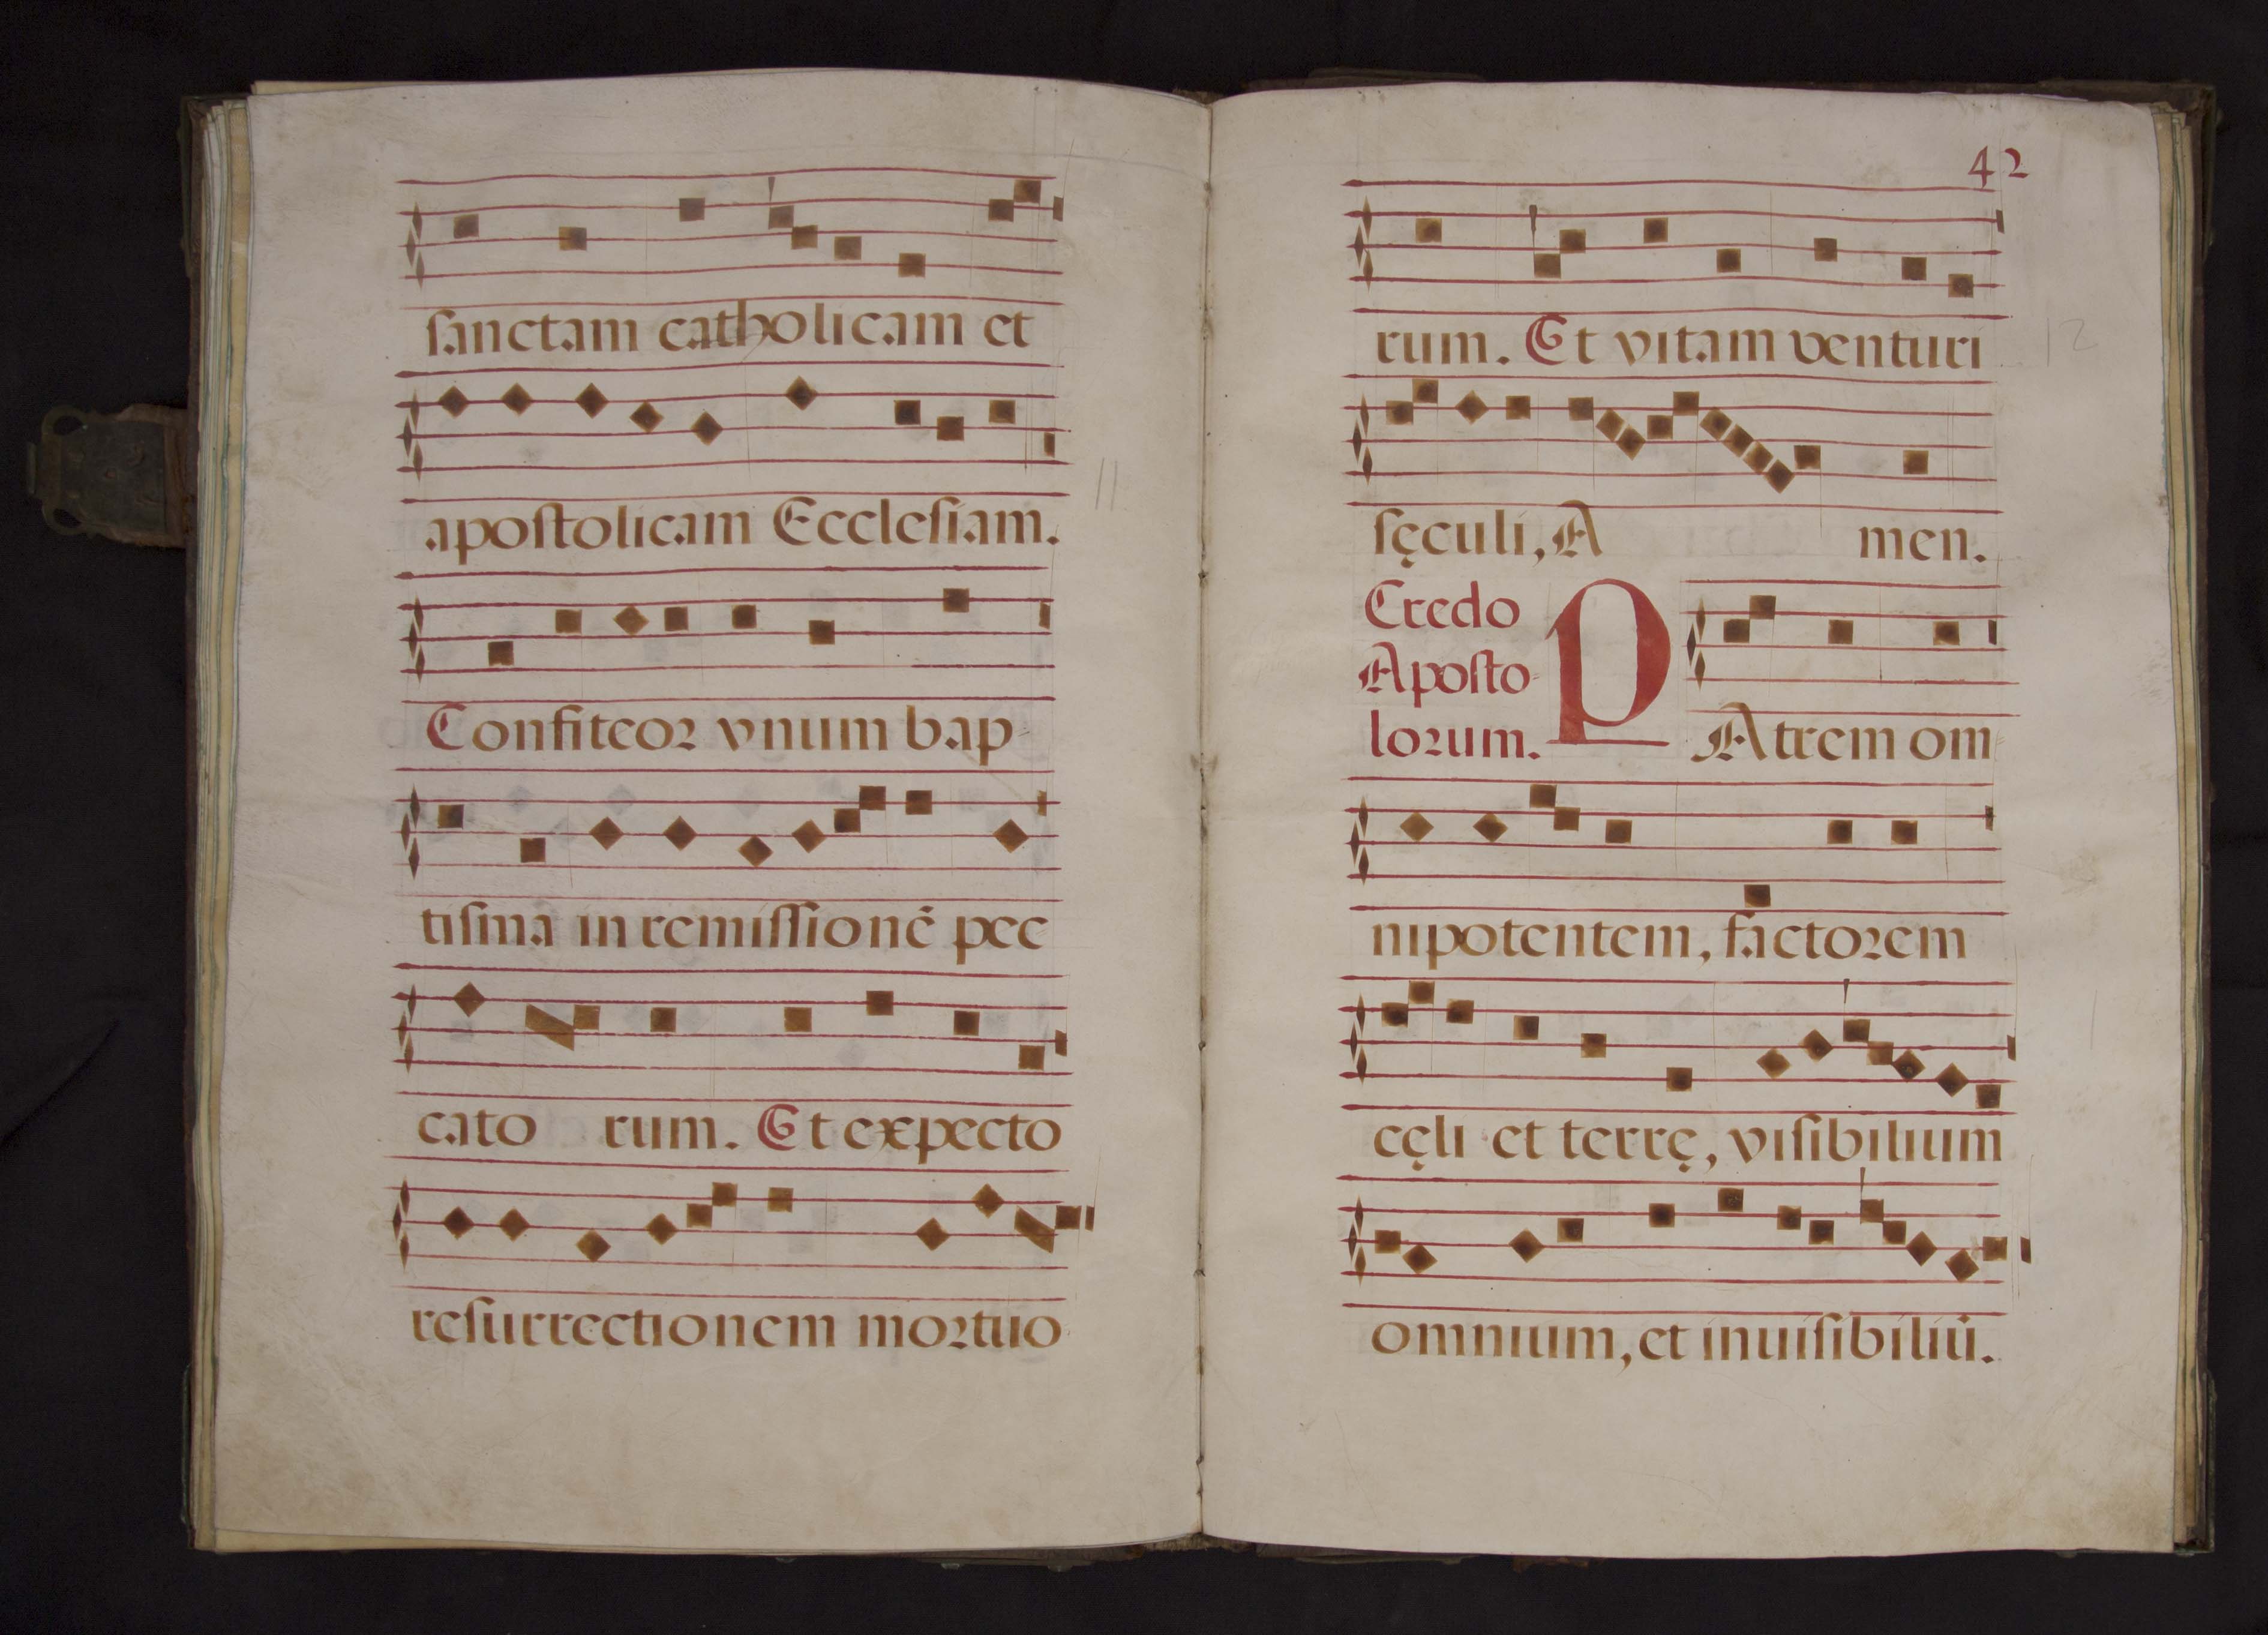 sanctam catholicam et
apostolicam Ecclesiam.
Confiteor vnum bap-
tisma in remissionē pec
cato rum. Et expecto
resurrectionem mortuo
11
42
rum. Et vitam venturi
12
sęculi, A men.
Credo
Aposto-
lorum.
PAtrem om-
nipotentem, factorem
cęli et terrę, visibilium
omnium, et inuisibiliū.